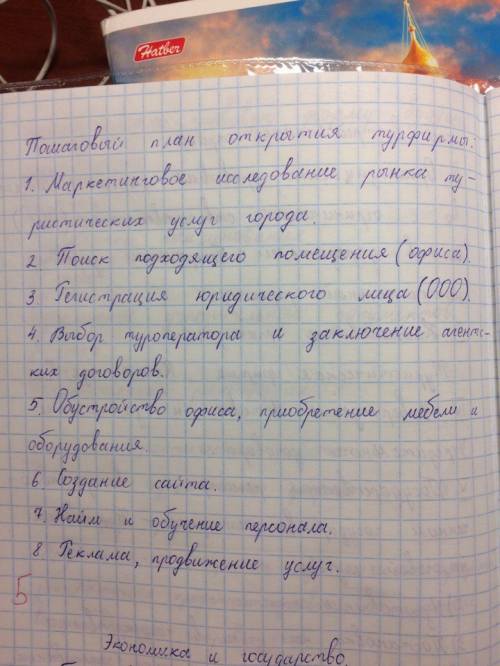 Hatber
Пошаговый план открытия турфирмы:
1. Маркетинговое исследование рынка ту-
ристических услуг города.
2. Поиск подходящего помещения (офиса).
3. Регистрация юридического лица (ООО).
4. Выбор туроператора и заключение агентс-
ких договоров.
5. Обустройство офиса, приобретение мебели и
оборудования.
6. Создание сайта.
7. Найм и обучение персонала.
8. Реклама, продвижение услуг.
5
Экономика и государство